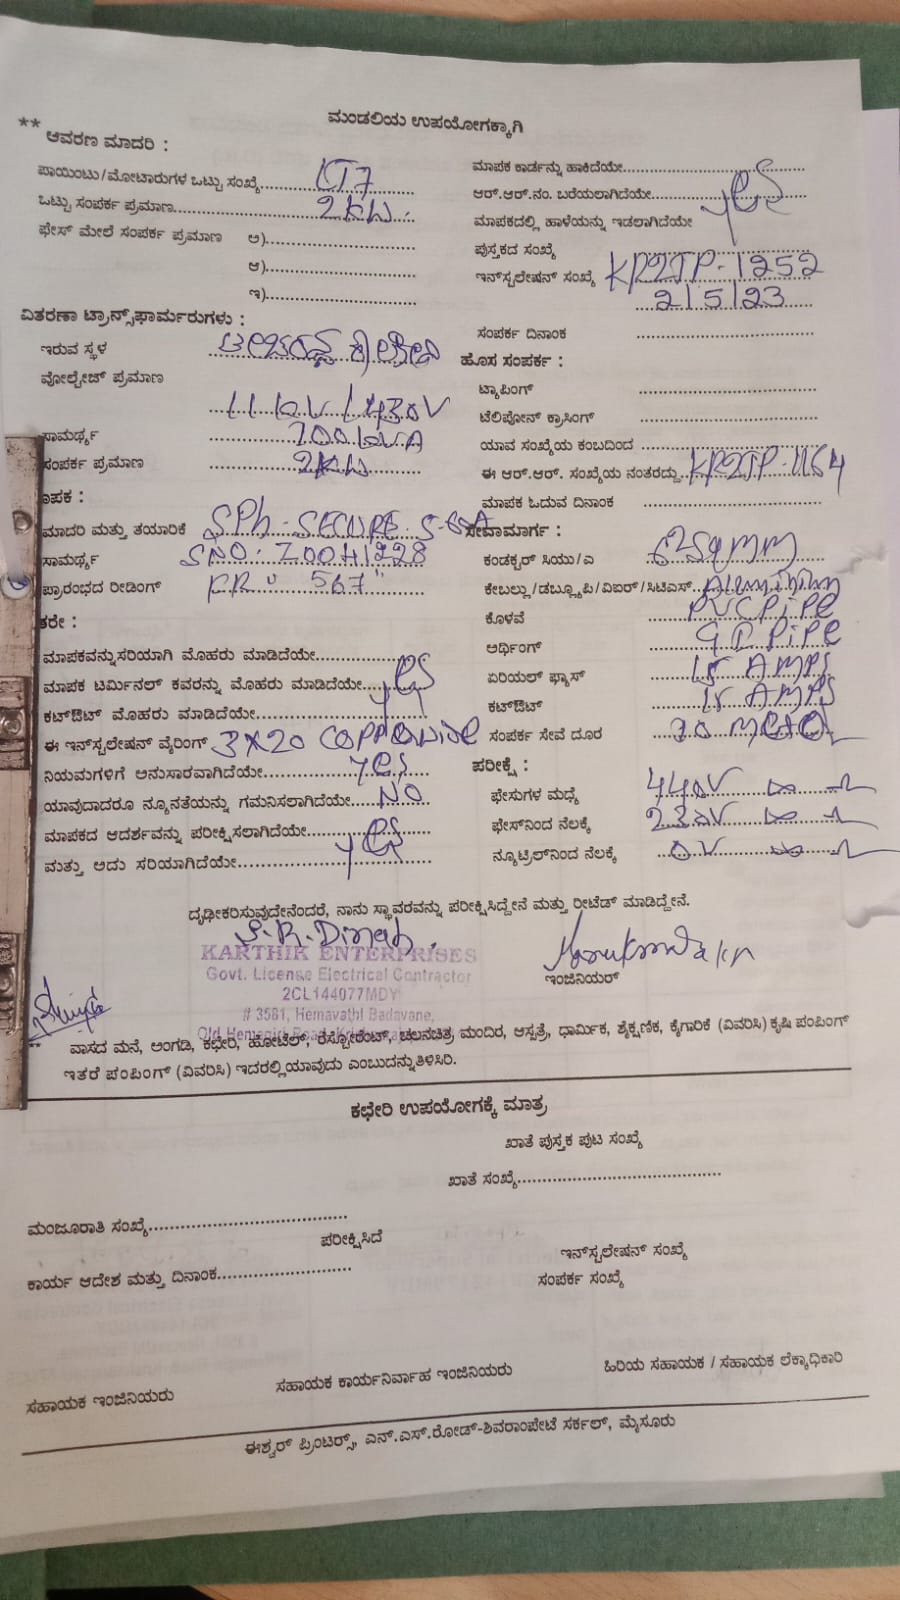 ಮಂಡಲಿಯ ಉಪಯೋಗಕ್ಕಾಗಿ
** ಆವರಣ ಮಾದರಿ :
ಪಾಯಿಂಟು/ಮೋಟಾರುಗಳ ಒಟ್ಟು ಸಂಖ್ಯೆ LT7
ಒಟ್ಟು ಸಂಪರ್ಕ ಪ್ರಮಾಣ 2KW.
ಫೇಸ್ ಮೇಲೆ ಸಂಪರ್ಕ ಪ್ರಮಾಣ ಅ)
ಆ)
ಇ)
ವಿತರಣಾ ಟ್ರಾನ್ಸ್‌ಫಾರ್ಮರುಗಳು :
ಇರುವ ಸ್ಥಳ
ವೋಲ್ಟೇಜ್ ಪ್ರಮಾಣ
11KV / 430V
ಸಾಮರ್ಥ್ಯ 100KVA
ಸಂಪರ್ಕ ಪ್ರಮಾಣ 2KW
ಾಪಕ :
ಮಾದರಿ ಮತ್ತು ತಯಾರಿಕೆ SPh - SECURE
ಸಾಮರ್ಥ್ಯ SNO: Z0041228
ಪ್ರಾರಂಭದ ರೀಡಿಂಗ್ F.R: 567"
ತರೇ :
ಮಾಪಕವನ್ನು ಸರಿಯಾಗಿ ಮೊಹರು ಮಾಡಿದೆಯೇ
ಮಾಪಕ ಟರ್ಮಿನಲ್ ಕವರನ್ನು ಮೊಹರು ಮಾಡಿದೆಯೇ yes
ಕಟ್‌ಔಟ್ ಮೊಹರು ಮಾಡಿದೆಯೇ
ಈ ಇನ್‌ಸ್ಟಲೇಷನ್ ವೈರಿಂಗ್ 3X20
ನಿಯಮಗಳಿಗೆ ಅನುಸಾರವಾಗಿದೆಯೇ yes
ಯಾವುದಾದರೂ ನ್ಯೂನತೆಯನ್ನು ಗಮನಿಸಲಾಗಿದೆಯೇ NO
ಮಾಪಕದ ಆದರ್ಶವನ್ನು ಪರೀಕ್ಷಿಸಲಾಗಿದೆಯೇ
ಮತ್ತು ಅದು ಸರಿಯಾಗಿದೆಯೇ yes
ಮಾಪಕ ಕಾರ್ಡನ್ನು ಹಾಕಿದೆಯೇ
ಆರ್.ಆರ್.ನಂ. ಬರೆಯಲಾಗಿದೆಯೇ yes
ಮಾಪಕದಲ್ಲಿ ಹಾಳೆಯನ್ನು ಇಡಲಾಗಿದೆಯೇ
ಪುಸ್ತಕದ ಸಂಖ್ಯೆ
ಇನ್‌ಸ್ಟಲೇಷನ್ ಸಂಖ್ಯೆ KR2TP-1252
2/5/23
ಸಂಪರ್ಕ ದಿನಾಂಕ
ಹೊಸ ಸಂಪರ್ಕ :
ಟ್ಯಾಪಿಂಗ್
ಟೆಲಿಪೋನ್ ಕ್ರಾಸಿಂಗ್
ಯಾವ ಸಂಖ್ಯೆಯ ಕಂಬದಿಂದ
ಈ ಆರ್.ಆರ್. ಸಂಖ್ಯೆಯ ನಂತರದ್ದು KR2TP-1164
ಮಾಪಕ ಓದುವ ದಿನಾಂಕ
ಸೇವಾಮಾರ್ಗ :
ಕಂಡಕ್ಟರ್ ಸಿಯು/ಎ
ಕೇಬಲ್ಲು/ಡಬ್ಲ್ಯೂಪಿ/ವಿಐರ್/ಸಿಟಿಎಸ್
ಕೊಳವೆ PVC PIPE
ಅರ್ಥಿಂಗ್ G I PIPE
ಏರಿಯಲ್ ಫ್ಯೂಸ್ 15 AMPS
ಕಟ್‌ಔಟ್ 15 AMPS
ಸಂಪರ್ಕ ಸೇವೆ ದೂರ
ಪರೀಕ್ಷೆ :
ಫೇಸುಗಳ ಮಧ್ಯೆ 440V
ಫೇಸ್‌ನಿಂದ ನೆಲಕ್ಕೆ 230V
ನ್ಯೂಟ್ರಲ್‌ನಿಂದ ನೆಲಕ್ಕೆ 0V
ದೃಢೀಕರಿಸುವುದೇನೆಂದರೆ, ನಾನು ಸ್ಥಾವರವನ್ನು ಪರೀಕ್ಷಿಸಿದ್ದೇನೆ ಮತ್ತು ರೀಟೆಡ್ ಮಾಡಿದ್ದೇನೆ.
KARTHIK ENTERPRISES
Govt. License Electrical Contractor
2CL144077MDY
# 3581, Hemavathi Badavane,
Old Hemagiri Road,
ಇಂಜಿನಿಯರ್
** ವಾಸದ ಮನೆ, ಅಂಗಡಿ, ಕಛೇರಿ, ಹೋಟೆಲ್, ರೆಸ್ಟೋರೆಂಟ್, ಚಲನಚಿತ್ರ ಮಂದಿರ, ಆಸ್ಪತ್ರೆ, ಧಾರ್ಮಿಕ, ಶೈಕ್ಷಣಿಕ, ಕೈಗಾರಿಕೆ (ವಿವರಿಸಿ) ಕೃಷಿ ಪಂಪಿಂಗ್
ಇತರೆ ಪಂಪಿಂಗ್ (ವಿವರಿಸಿ) ಇದರಲ್ಲಿ ಯಾವುದು ಎಂಬುದನ್ನು ತಿಳಿಸಿರಿ.
ಕಛೇರಿ ಉಪಯೋಗಕ್ಕೆ ಮಾತ್ರ
ಖಾತೆ ಪುಸ್ತಕ ಪುಟ ಸಂಖ್ಯೆ
ಖಾತೆ ಸಂಖ್ಯೆ
ಮಂಜೂರಾತಿ ಸಂಖ್ಯೆ
ಪರೀಕ್ಷಿಸಿದೆ
ಇನ್‌ಸ್ಟಲೇಷನ್ ಸಂಖ್ಯೆ
ಕಾರ್ಯ ಆದೇಶ ಮತ್ತು ದಿನಾಂಕ
ಸಂಪರ್ಕ ಸಂಖ್ಯೆ
ಸಹಾಯಕ ಇಂಜಿನಿಯರು
ಸಹಾಯಕ ಕಾರ್ಯನಿರ್ವಾಹ ಇಂಜಿನಿಯರು
ಹಿರಿಯ ಸಹಾಯಕ / ಸಹಾಯಕ ಲೆಕ್ಕಾಧಿಕಾರಿ
ಈಶ್ವರ್ ಪ್ರಿಂಟರ್ಸ್, ಎನ್.ಎಸ್.ರೋಡ್-ಶಿವರಾಂಪೇಟೆ ಸರ್ಕಲ್, ಮೈಸೂರು